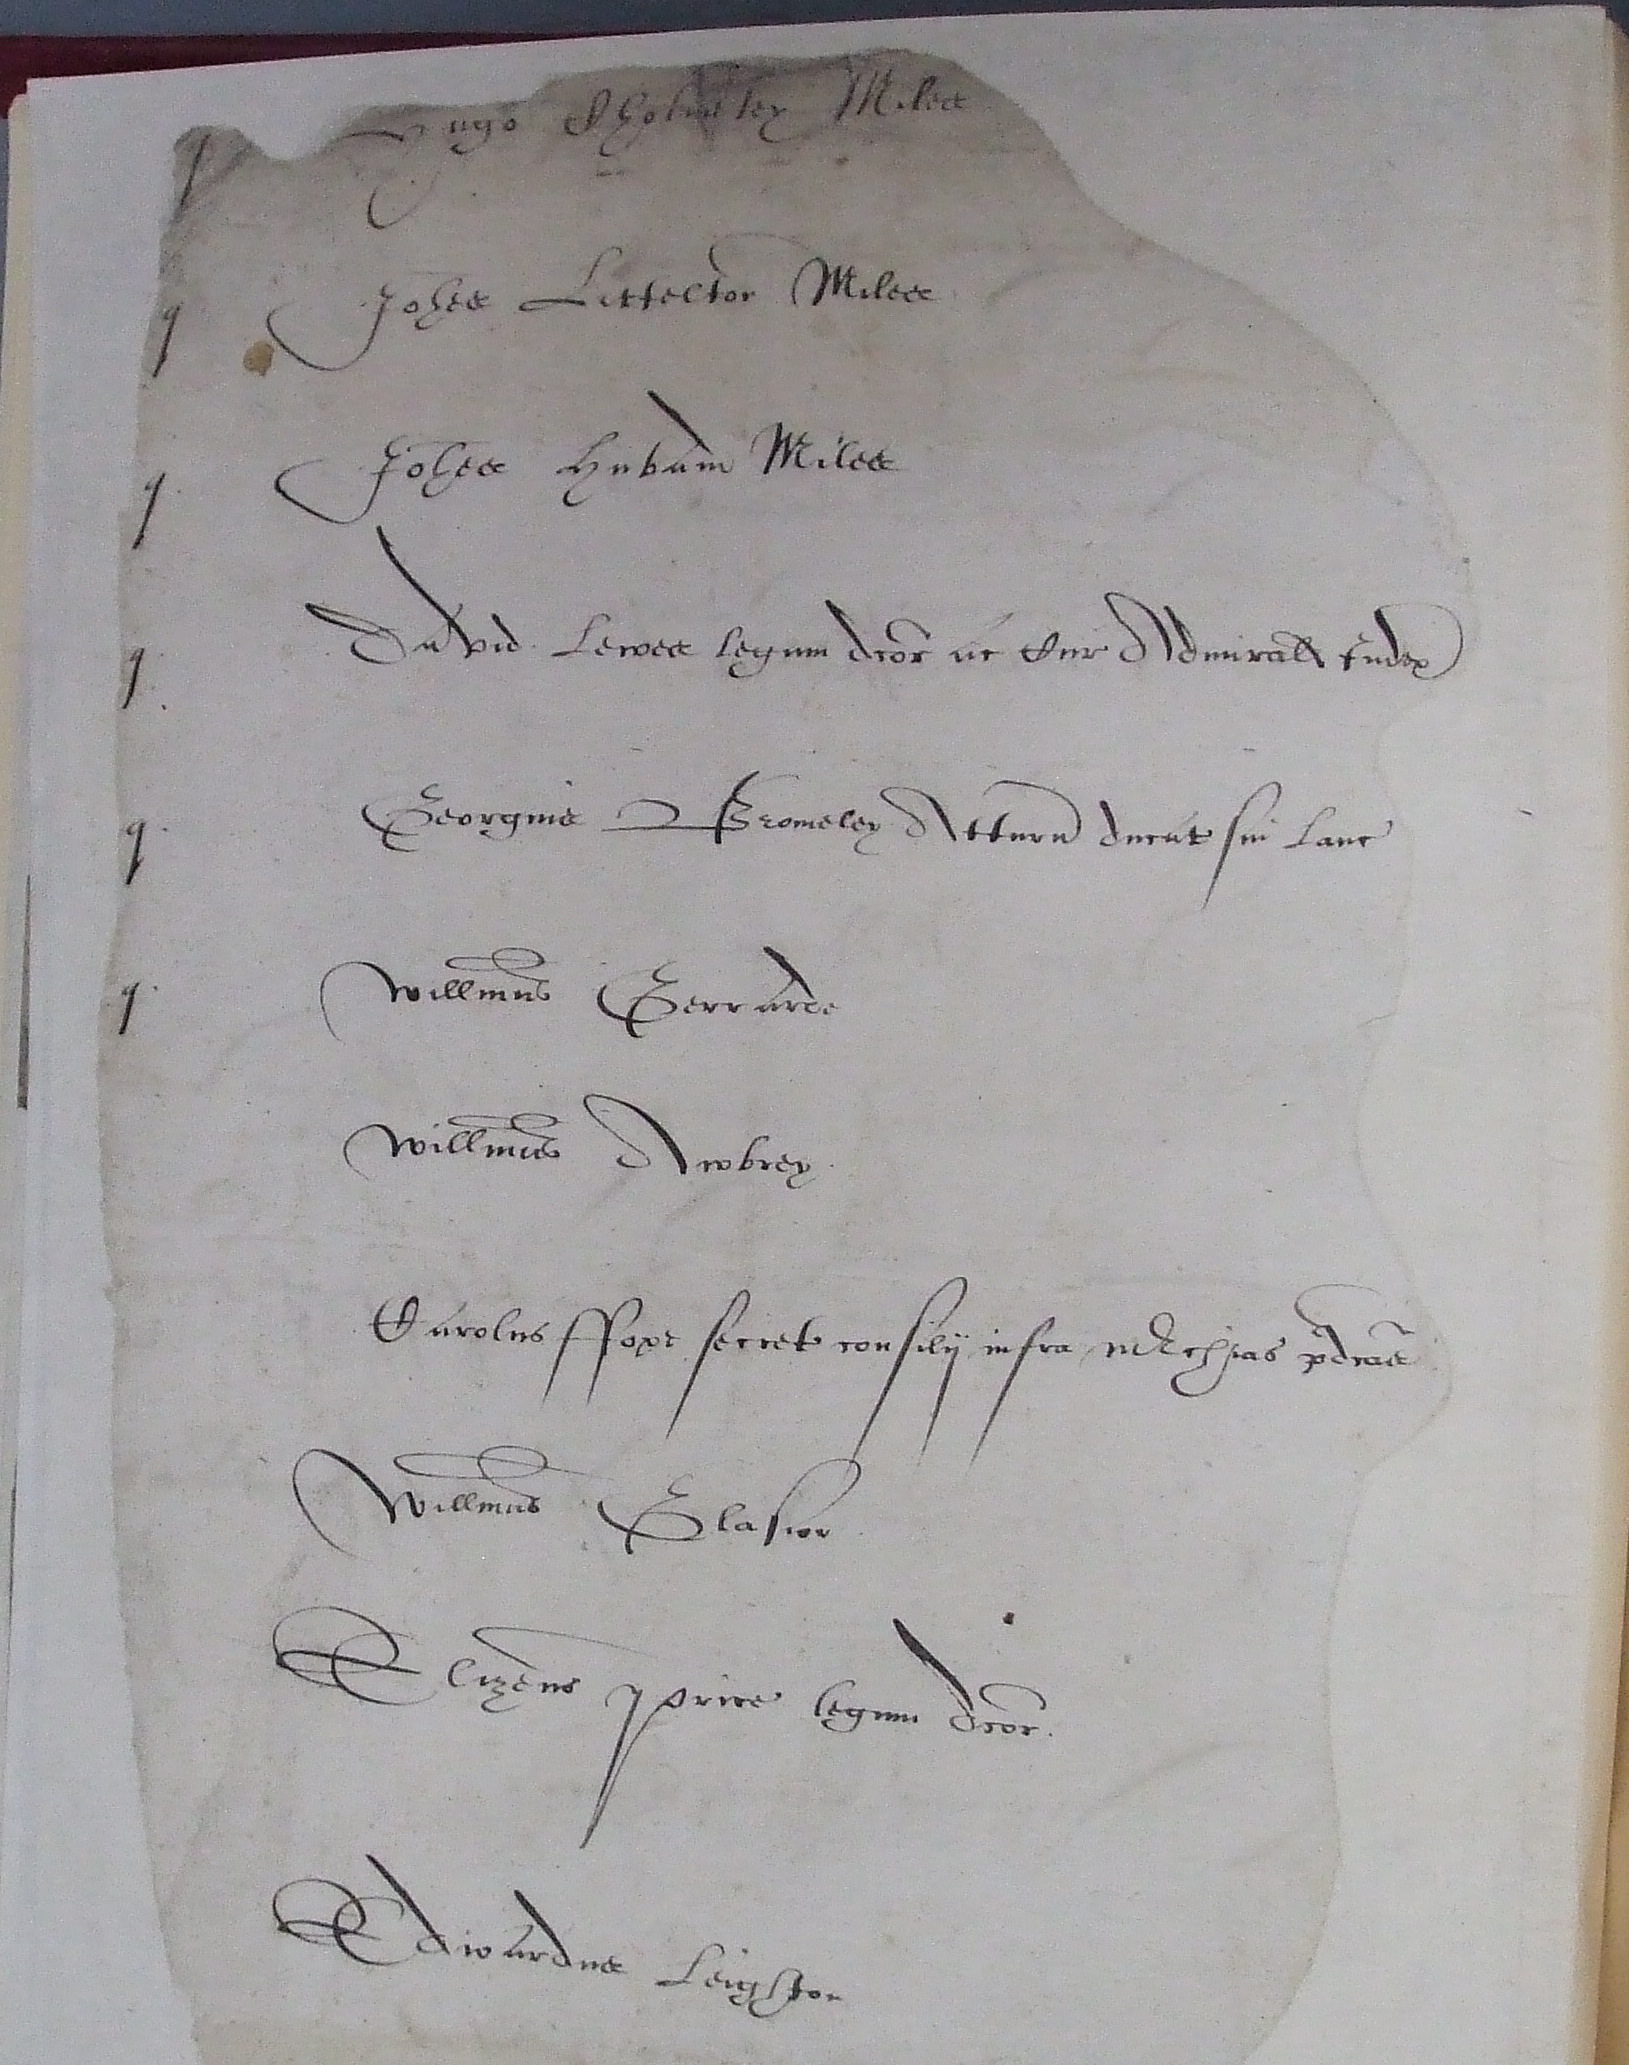 q Hugo Cholmeley Miles
q Johes Littelton Miles
q Johes Hubam Miles
q David Lewes legum dcor ac Cur Admirall Judex
q Georgius Bromeley Atturn ducat sui Lanc
q Willmus Gerrarde
Willmus Awbrey
Carolus ffoxe secret consilij infra mrchias pdcas
Willmus Glasior
Elizeus Price legum dcor
Edwardus Leighton